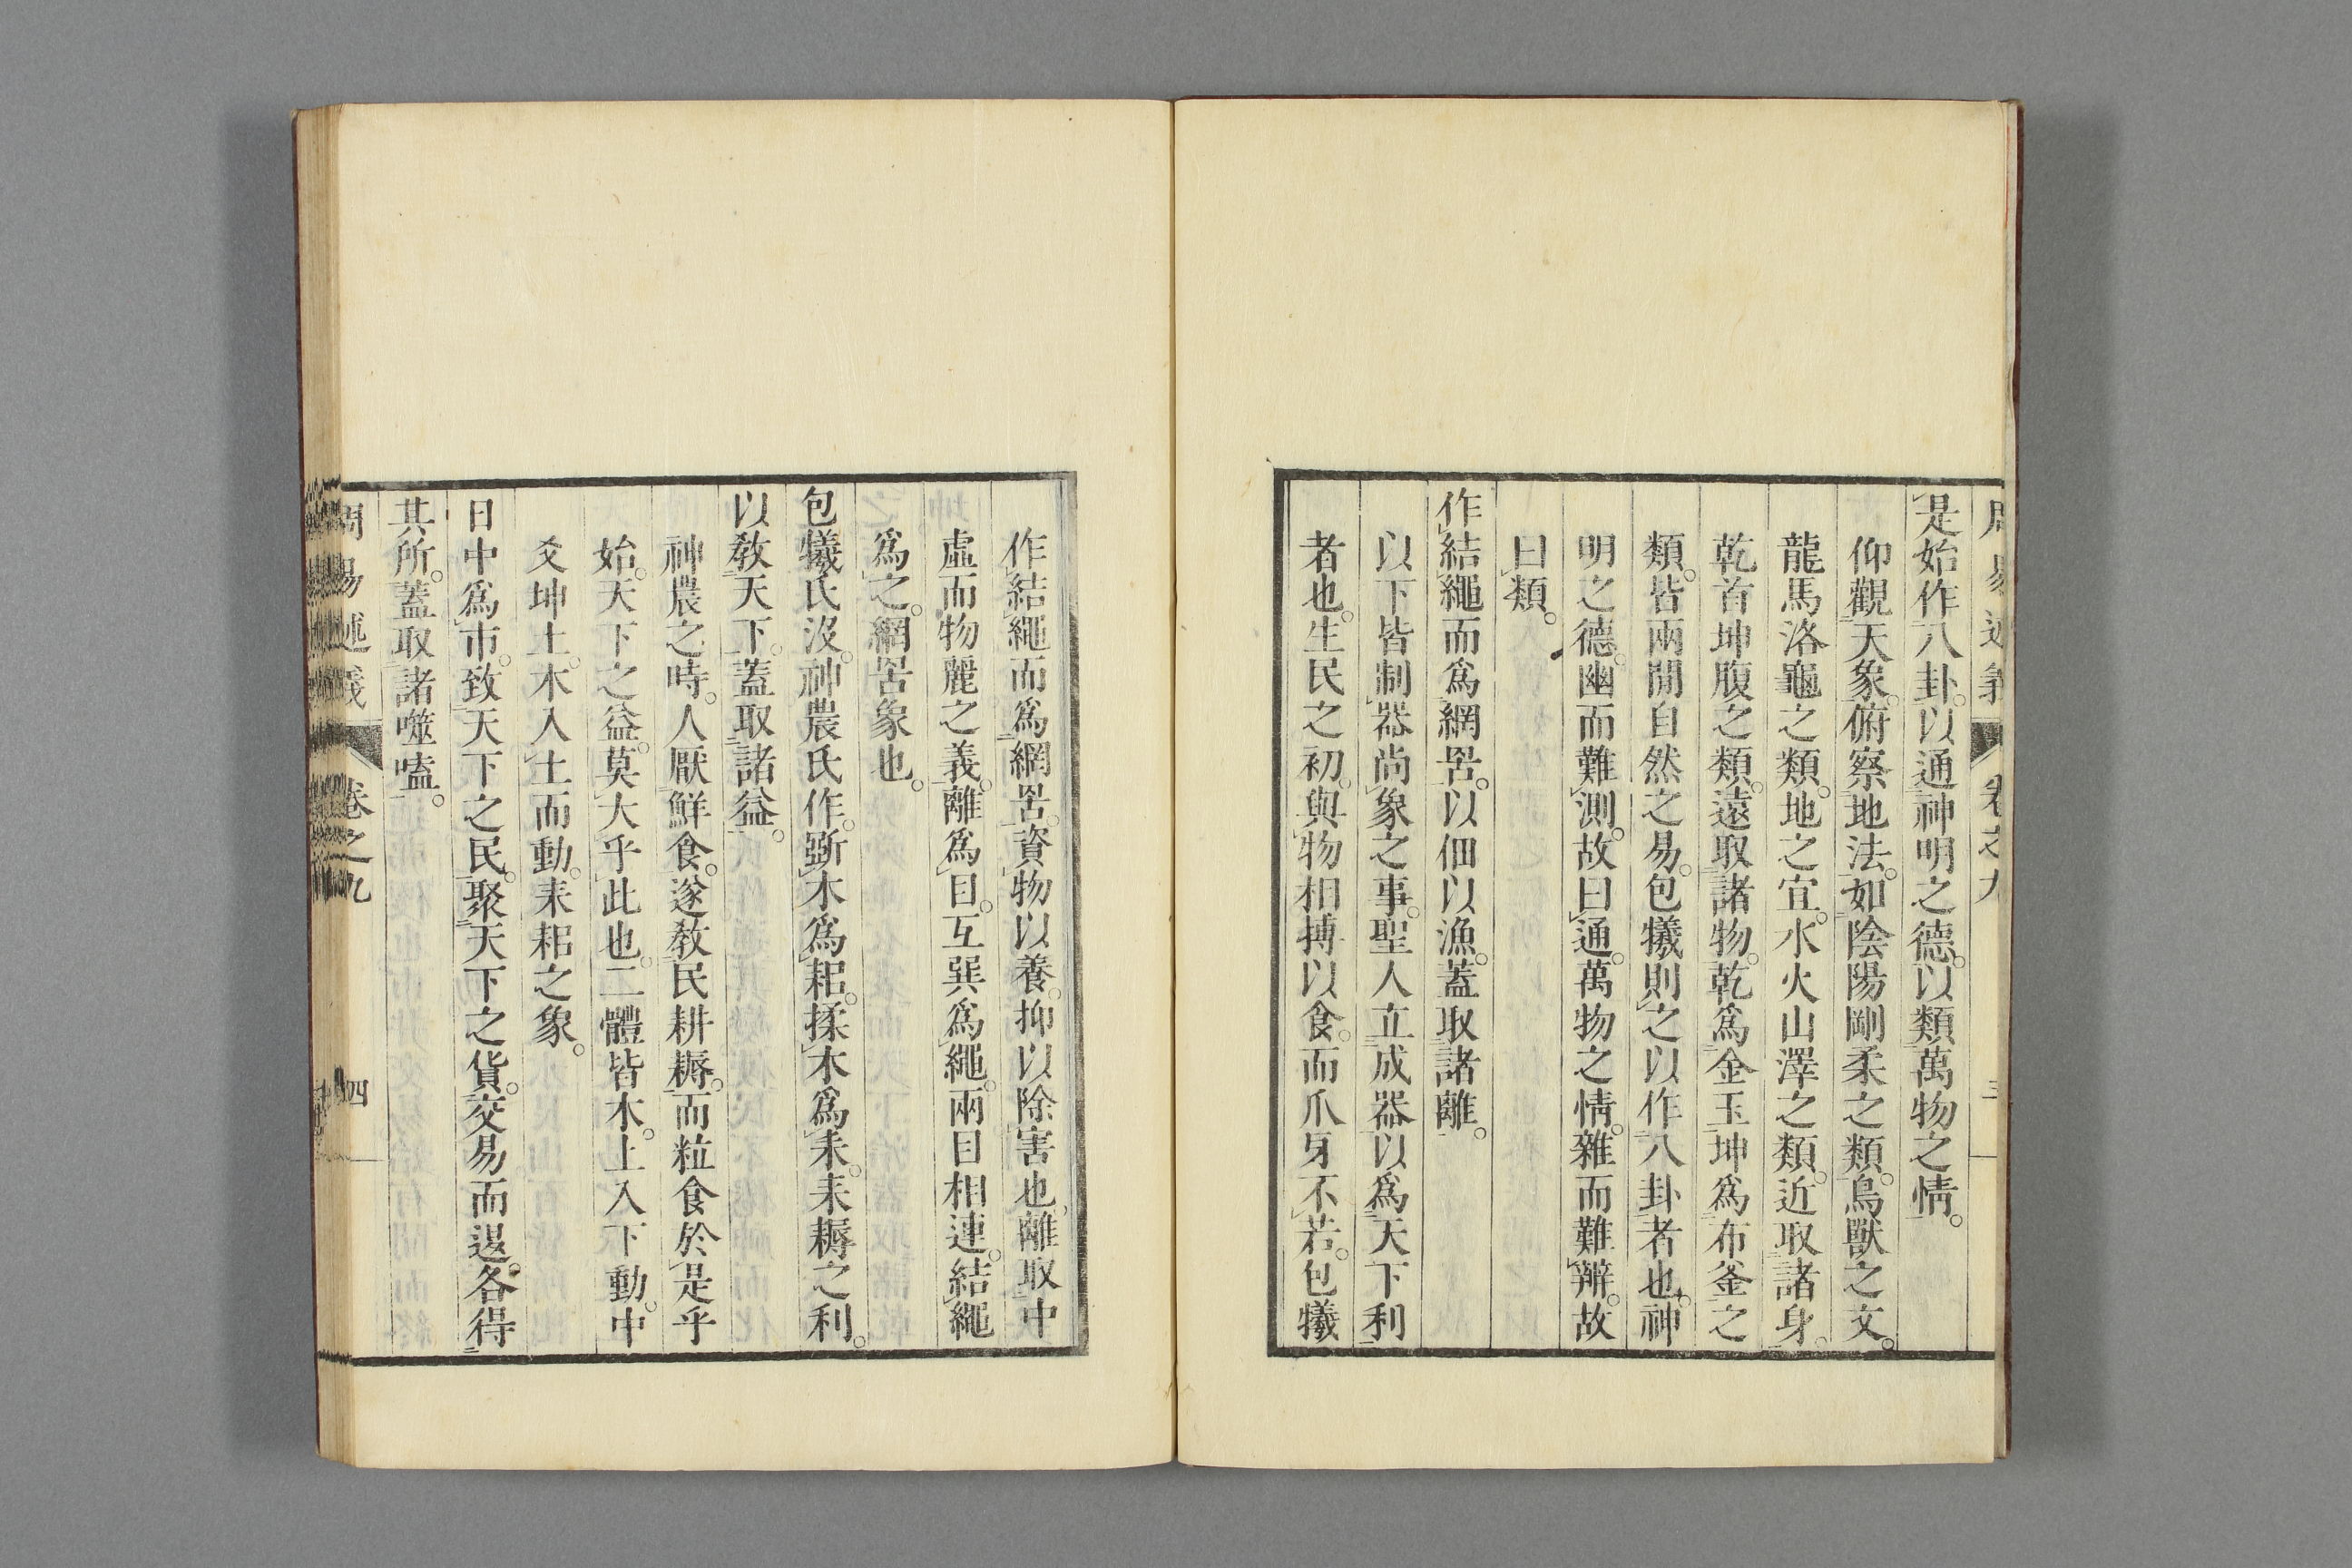 周易述義 卷之九 三
是始作八卦。以通神明之德。以類萬物之情。
仰觀天象。俯察地法。如陰陽剛柔之類。鳥獸之文。
龍馬洛龜之類。地之宜。水火山澤之類。近取諸身。
乾首坤腹之類。遠取諸物。乾爲金玉坤爲布釜之
類。皆兩閒自然之易。包犧則之以作八卦者也。神
明之德。幽而難測。故曰通。萬物之情。雜而難辨。故
曰類。
作結繩而爲網罟。以佃以漁。蓋取諸離。
以下皆制器尚象之事。聖人立成器以爲天下利
者也。生民之初。與物相搏以食。而爪牙不若。包犧
作結繩而爲網罟。資物以養。抑以除害也。離取中
虛而物麗之義。離爲目。互巽爲繩。兩目相連。結繩
爲之。網罟象也。
包犧氏沒。神農氏作。斲木爲耜。揉木爲耒。耒耨之利。
以敎天下。蓋取諸益。
神農之時。人厭鮮食。遂敎民耕耨。而粒食於是乎
始。天下之益。莫大乎此也。二體皆木。上入下動。中
爻坤土。木入土而動。耒耜之象。
日中爲市。致天下之民。聚天下之貨。交易而退。各得
其所。蓋取諸噬嗑。
周易述義 卷之九 四